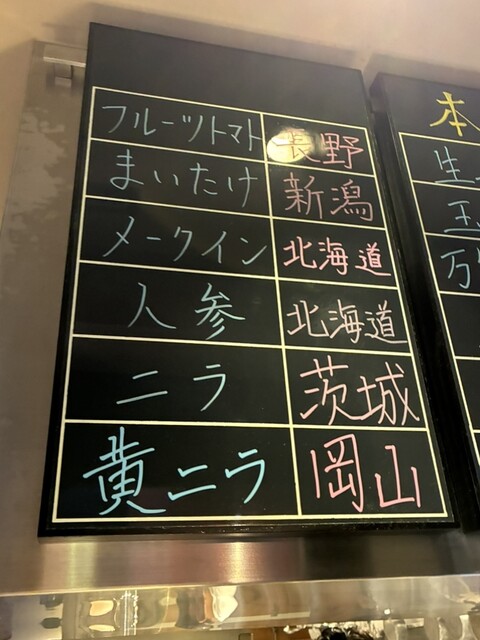 フルーツトマト 長野
まいたけ 新潟
メークイン 北海道
人参 北海道
ニラ 茨城
黄ニラ 岡山
本
生
万